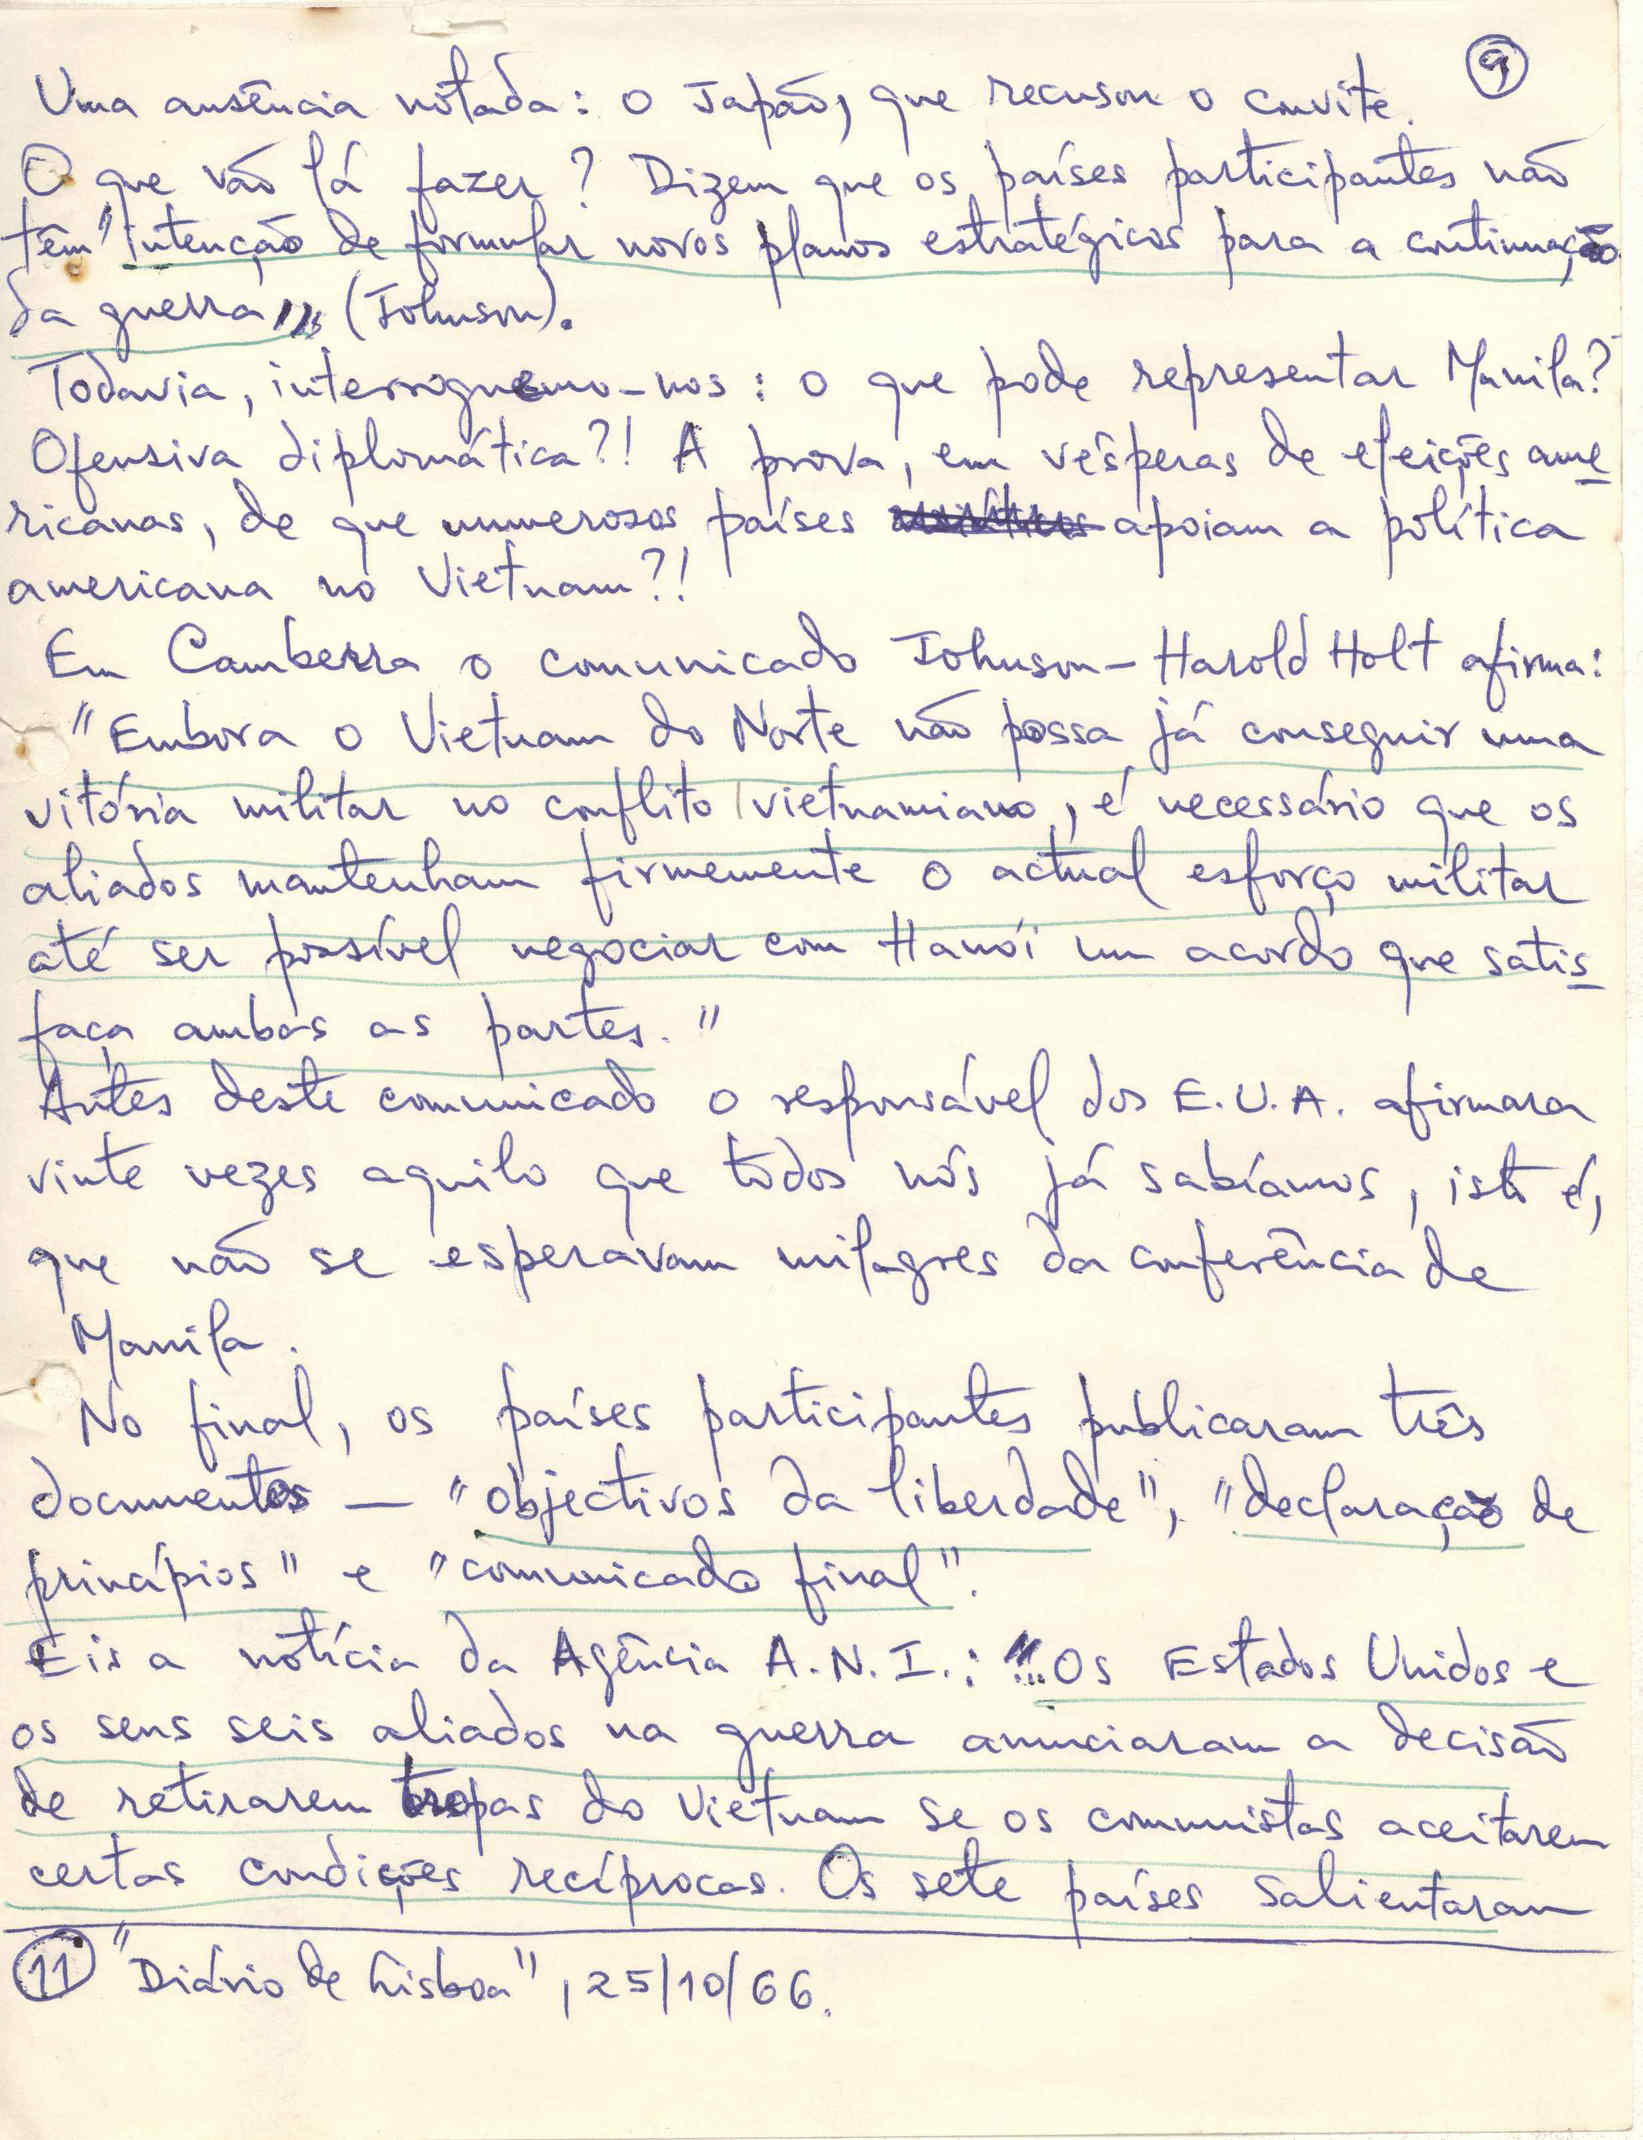 9
Uma ausência notada: o Japão, que recusou o convite.
O que vão lá fazer? Dizem que os países participantes não
têm "intenção de formular novos planos estratégicos para a continuação
da guerra", (Johnson).
Todavia, interroguemo-nos: o que pode representar Manila?
Ofensiva diplomática?! A prova, em vésperas de eleições ame
ricanas, de que numerosos países apoiam a política
americana no Vietnam?!
Em Camberra o comunicado Johnson-Harold Holt afirma:
"Embora o Vietnam do Norte não possa já conseguir uma
vitória militar no conflito vietnamiano, é necessário que os
aliados mantenham firmemente o actual esforço militar
até ser possível negociar com Hanói um acordo que satis
faça ambas as partes."
Antes deste comunicado o responsável dos E.U.A. afirmara
vinte vezes aquilo que todos nós já sabíamos, isto é,
que não se esperavam milagres da conferência de
Manila.
No final, os países participantes publicaram três
documentos — "objectivos da liberdade", "declaração de
princípios" e "comunicado final".
Eis a notícia da Agência A.N.I.: "...Os Estados Unidos e
os seus seis aliados na guerra anunciaram a decisão
de retirarem tropas do Vietnam se os comunistas aceitarem
certas condições recíprocas. Os sete países salientaram
11 "Diário de Lisboa", 25/10/66.